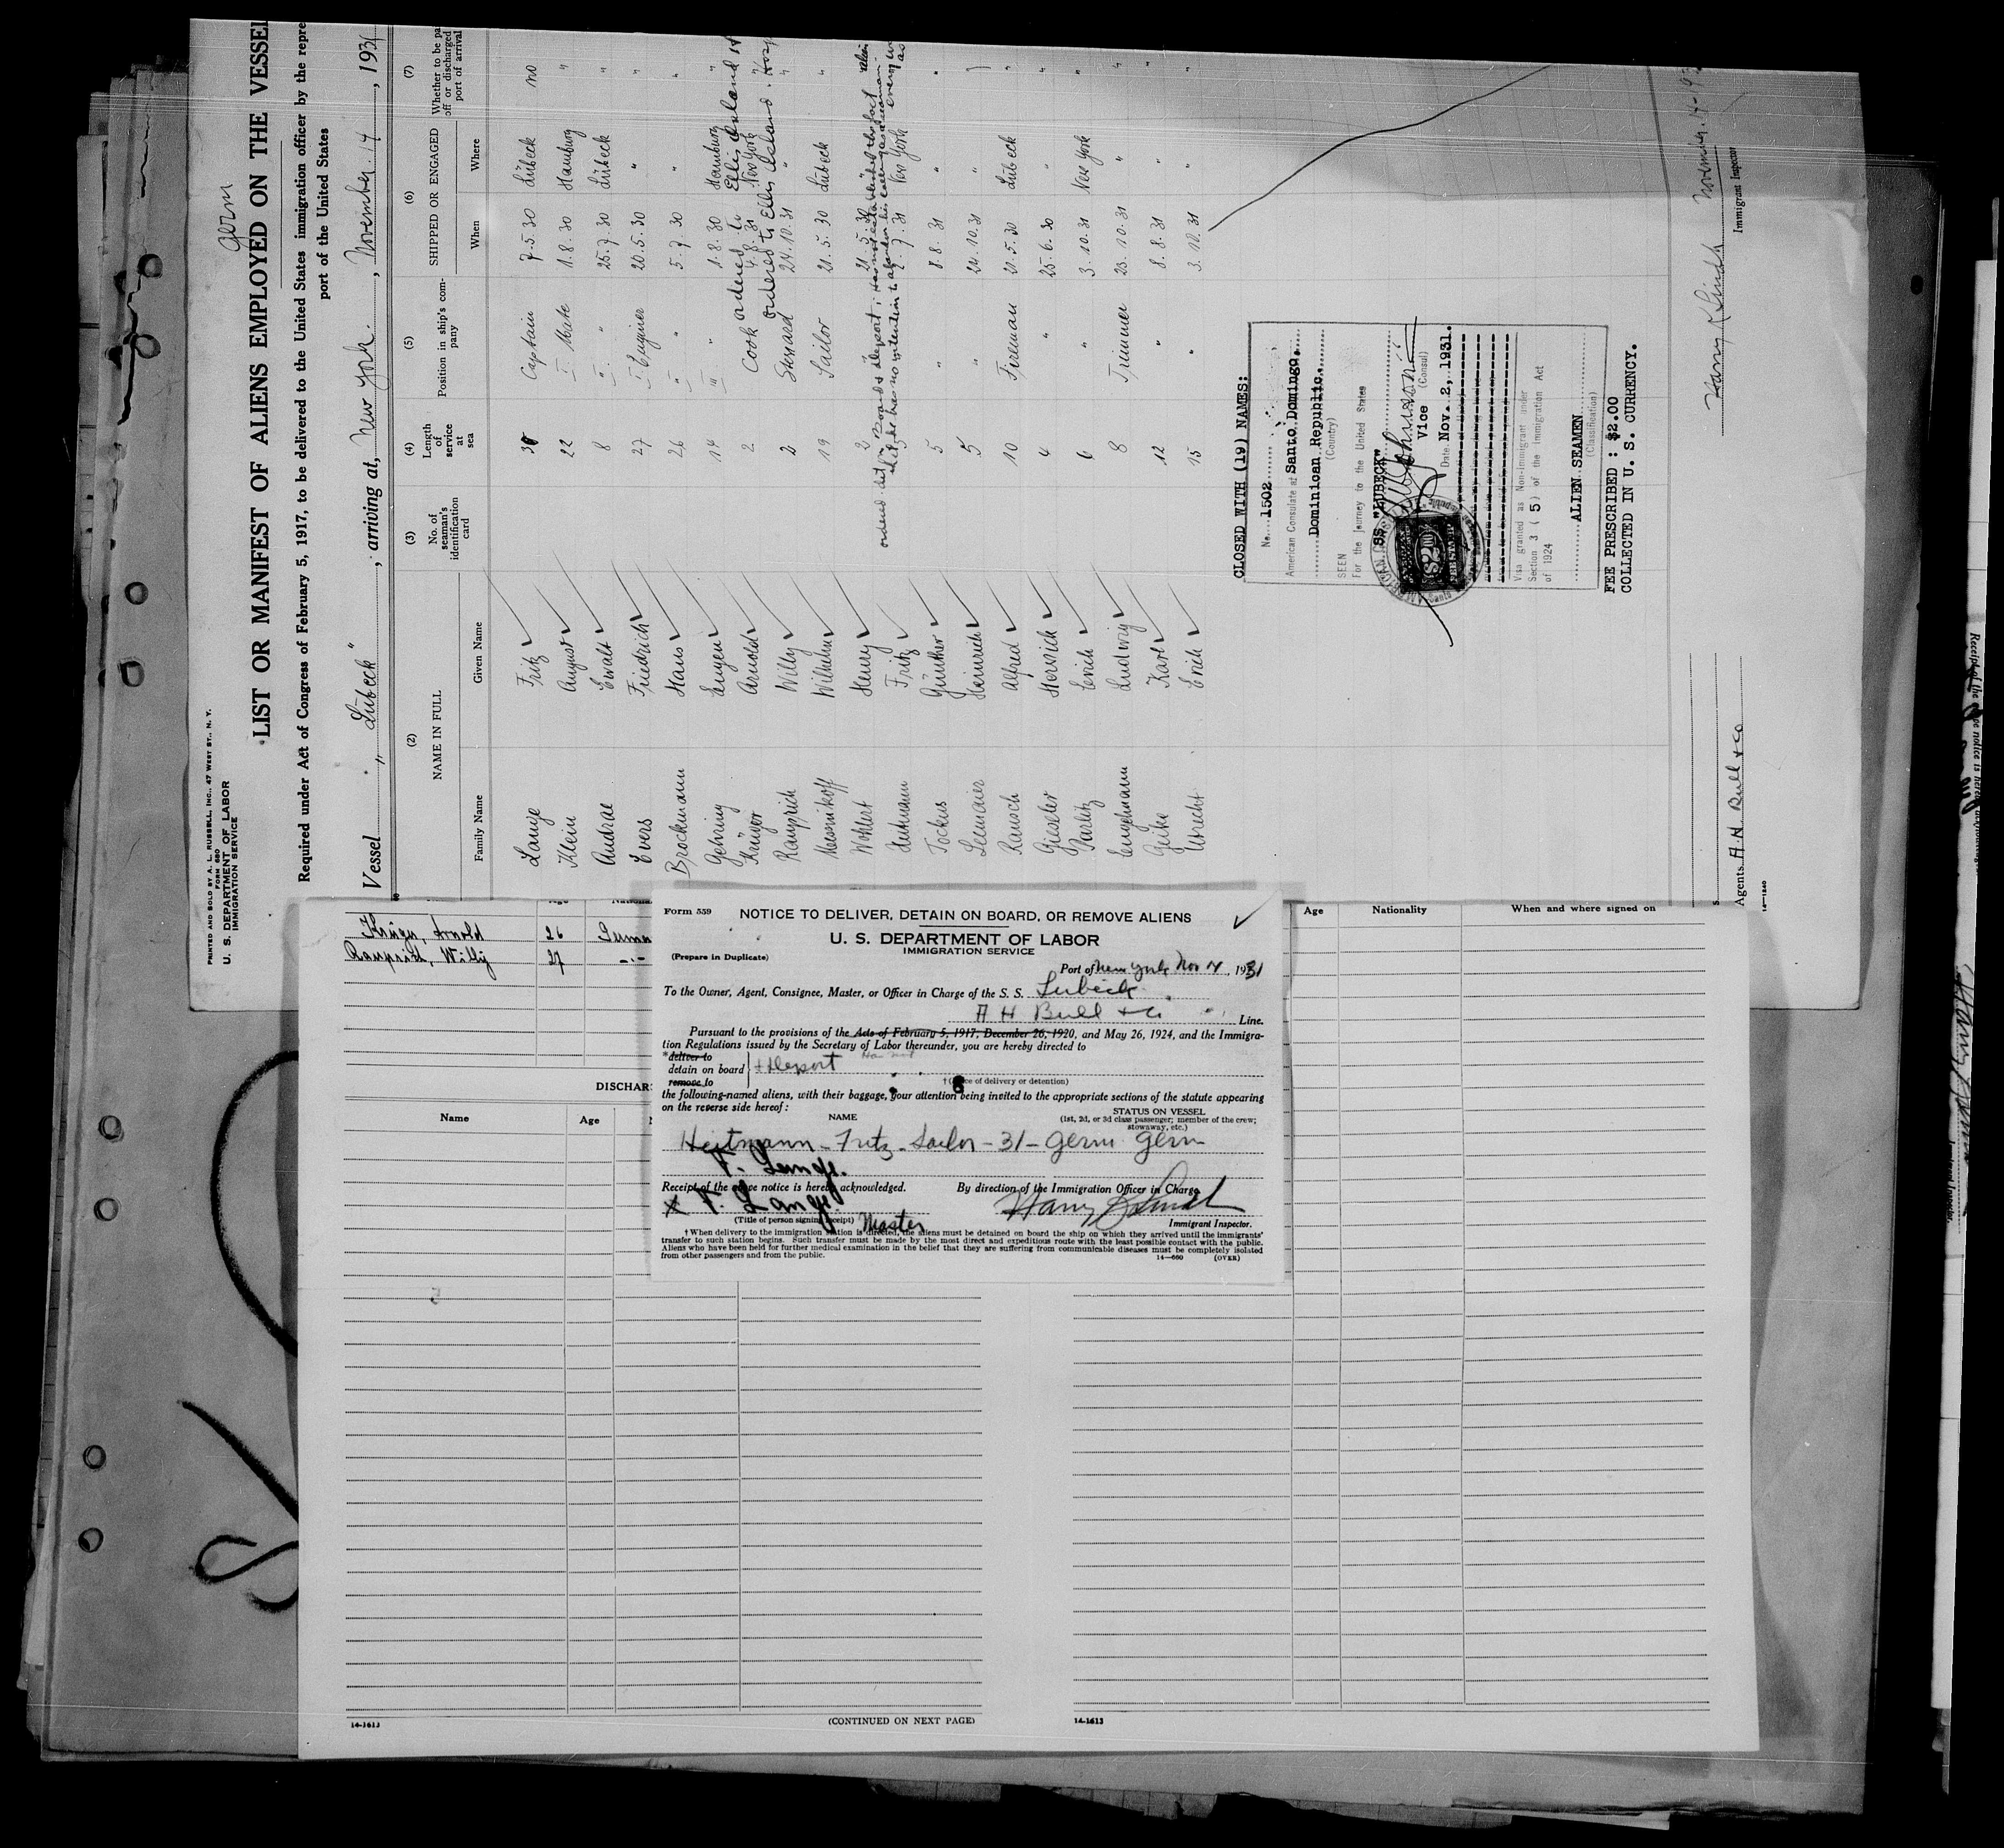 PRINTED AND SOLD BY A. L. RUSSELL, INC., 47 WEST ST., N. Y.
FORM 680
U. S. DEPARTMENT OF LABOR
IMMIGRATION SERVICE
Germ
LIST OR MANIFEST OF ALIENS EMPLOYED ON THE VESSEL
Required under Act of Congress of February 5, 1917, to be delivered to the United States immigration officer by the repre
port of the United States
Vessel "Lübeck", arriving at, New York, November 14, 1931
(2) (3) (4) (5) (6) (7)
NAME IN FULL
No. of seaman's identification card
Length of service at sea
Position in ship's company
SHIPPED OR ENGAGED
Whether to be pa
off or discharged
port of arrival
Family Name Given Name When Where
Lange Fritz Captain 7.5.30 Lübeck no
Klein August 22 I Mate 1.8.30 Hamburg "
Andrae Ewalt 8 II " 25.7.30 Lübeck "
Evers Friedrich 27 I Engineer 20.5.30 " "
Brockmann Hans 26 II " 5.7.30 " "
Gehring Eugen 14 III " 1.8.30 Hamburg "
ordered to Ellis Island
Krüger Arnold 2 Cook 4.8.31 New York "
ordered to Ellis Island. Hosp
Rauprich Willy 2 Steward 24.10.31 " "
Wilhelm 19 Sailor 21.5.30 Lübeck "
Wohlert Henry 2 " 21.5.30 "
ordered det on Board & deport; has not established the fact
that he has no intention to abandon his calling as a seaman.
Heitmann Fritz 2.7.31 New York
Tockus Günther 5 " 8.8.31 " "
Lemaier Heinrich 5 " 24.10.31 "
Rausch Alfred 10 Fireman 21.5.30 Lübeck "
Gieseler Herwich 4 " 25.6.30 " "
Parlitz Erich 6 " 3.10.31 New York "
Engelmann Ludwig 8 Trimmer 23.10.31 " "
Geike Karl 12 " 8.8.31 " "
Utrecht Erich 15 " 3.10.31 " "
CLOSED WITH (19) NAMES:
No. 1502
American Consulate at Santo Domingo,
Dominican Republic.
(Country)
SEEN
For the journey to the United States
SS. "LUBECK"
Vice (Consul)
Date Nov. 2, 1931.
Visa granted as Non-Immigrant under
Section 3 (5) of the Immigration Act
of 1924
ALIEN SEAMEN
(Classification)
FEE PRESCRIBED : $2.00
COLLECTED IN U. S. CURRENCY.
November 14-193
Immigrant Inspector
Agents A. H. Bull & Co
14-1240
Receipt of the above notice is hereby
Krüger, Arnold 26 German
Rauprich, Willy 27 -"-
DISCHAR
Name Age
Age Nationality When and where signed on
Form 559
NOTICE TO DELIVER, DETAIN ON BOARD, OR REMOVE ALIENS
U. S. DEPARTMENT OF LABOR
IMMIGRATION SERVICE
(Prepare in Duplicate)
Port of New York Nov 14, 1931
To the Owner, Agent, Consignee, Master, or Officer in Charge of the S. S. Lubeck
A H Bull & Co Line.
Pursuant to the provisions of the Acts of February 5, 1917, December 26, 1920, and May 26, 1924, and the Immigra-
tion Regulations issued by the Secretary of Labor thereunder, you are hereby directed to
*deliver to
detain on board & Deport
remove to
†(Place of delivery or detention)
the following-named aliens, with their baggage, your attention being invited to the appropriate sections of the statute appearing
on the reverse side hereof:
NAME
STATUS ON VESSEL
(1st, 2d, or 3d class passenger; member of the crew;
stowaway, etc.)
Heitmann - Fritz - Sailor - 31 - Germ Germ
F. Lange.
Receipt of the above notice is hereby acknowledged. By direction of the Immigration Officer in Charge
x F. Lange
(Title of person signing receipt) Master
Immigrant Inspector.
†When delivery to the immigration station is directed, the aliens must be detained on board the ship on which they arrived until the immigrants'
transfer to such station begins. Such transfer must be made by the most direct and expeditious route with the least possible contact with the public.
Aliens who have been held for further medical examination in the belief that they are suffering from communicable diseases must be completely isolated
from other passengers and from the public.
14-660 (OVER)
14-1613
(CONTINUED ON NEXT PAGE)
14-1613